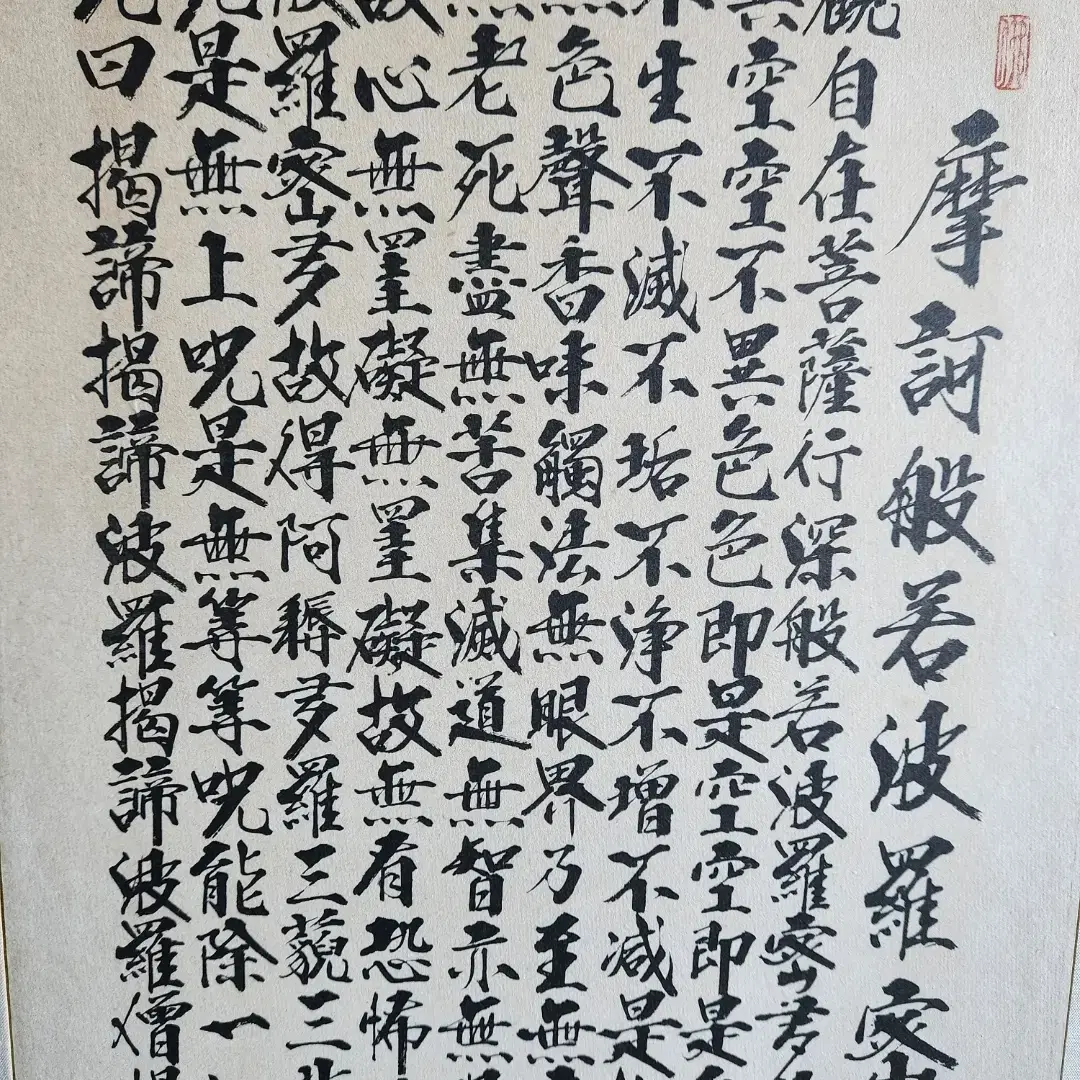 摩訶般若波羅蜜
観自在菩薩行深般若波羅蜜多
異空空不異色色即是空空即是
不生不滅不垢不浄不増不減是
無色聲香味觸法無眼界乃至無
無老死盡無苦集滅道無智亦無
故心無罣礙無罣礙故無有恐怖
般羅蜜多故得阿耨多羅三藐三
是無上呪是無等等呪能除一
曰揭諦揭諦波羅揭諦波羅僧